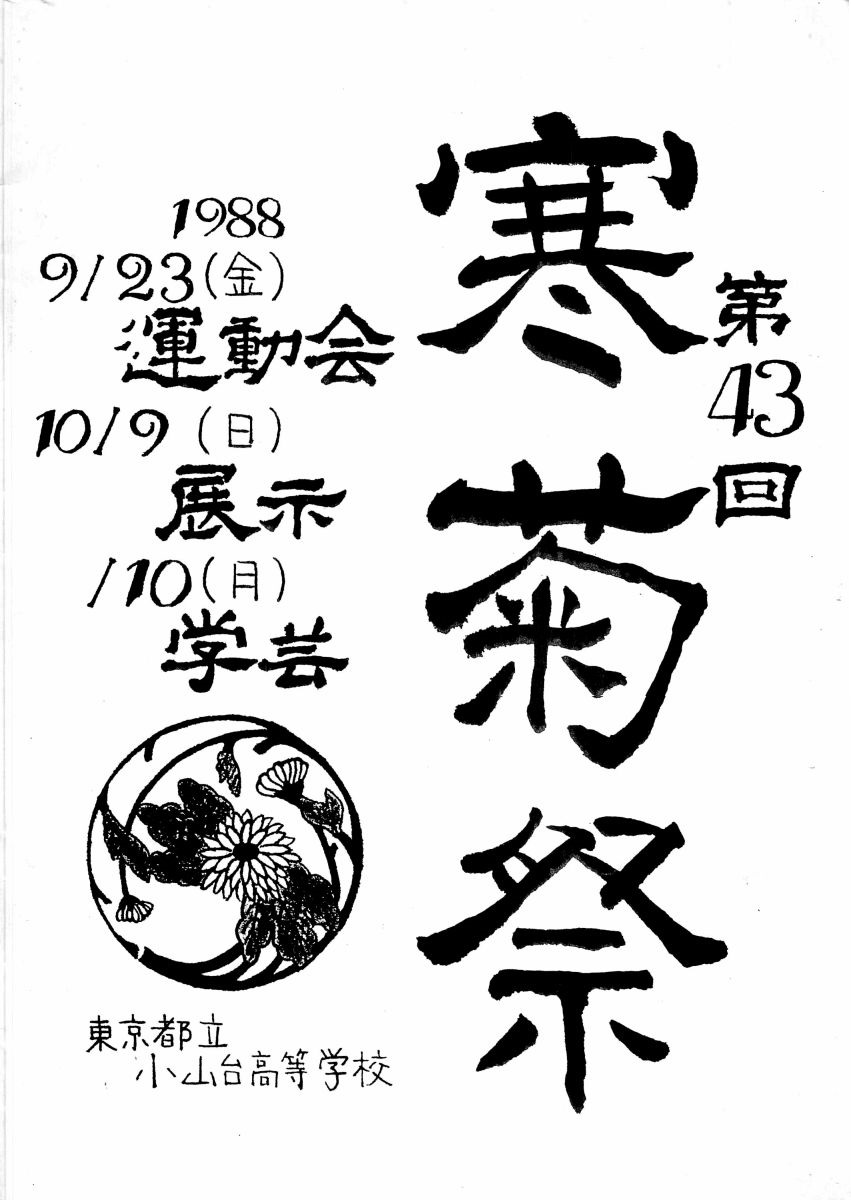 第43回
寒菊祭
1988
9/23(金)
運動会
10/9(日)
展示
/10(月)
学芸
東京都立
小山台高等学校